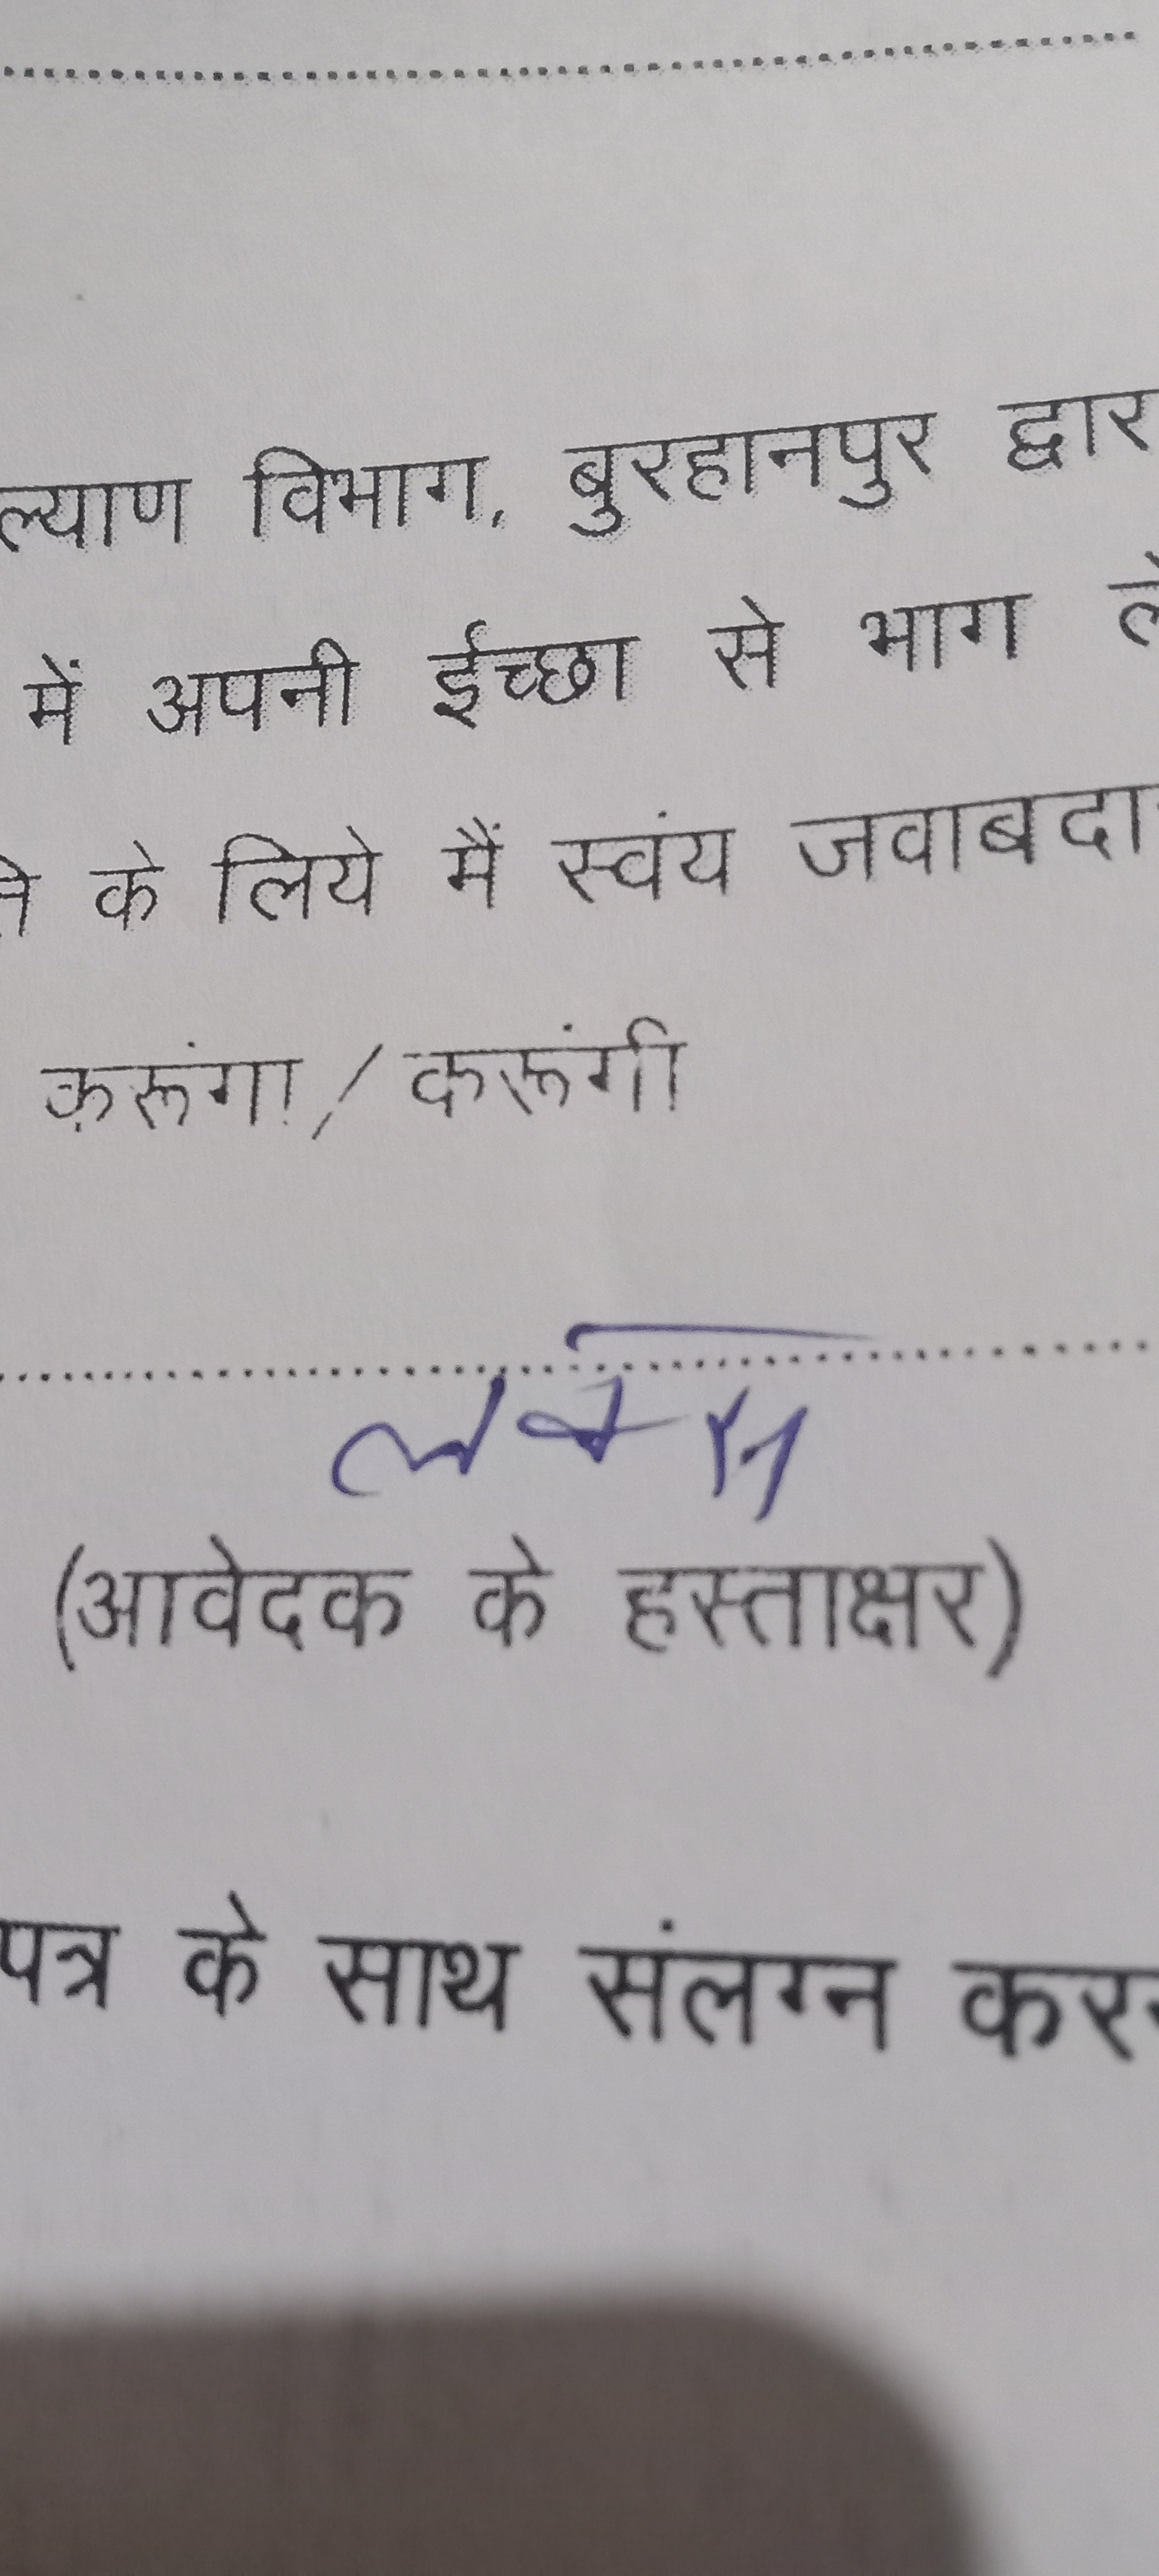 ल्याण विभाग, बुरहानपुर द्वार
में अपनी ईच्छा से भाग ले
के लिये मैं स्वंय जवाबदा
करूंगा / करूंगी
(आवेदक के हस्ताक्षर)
पत्र के साथ संलग्न कर